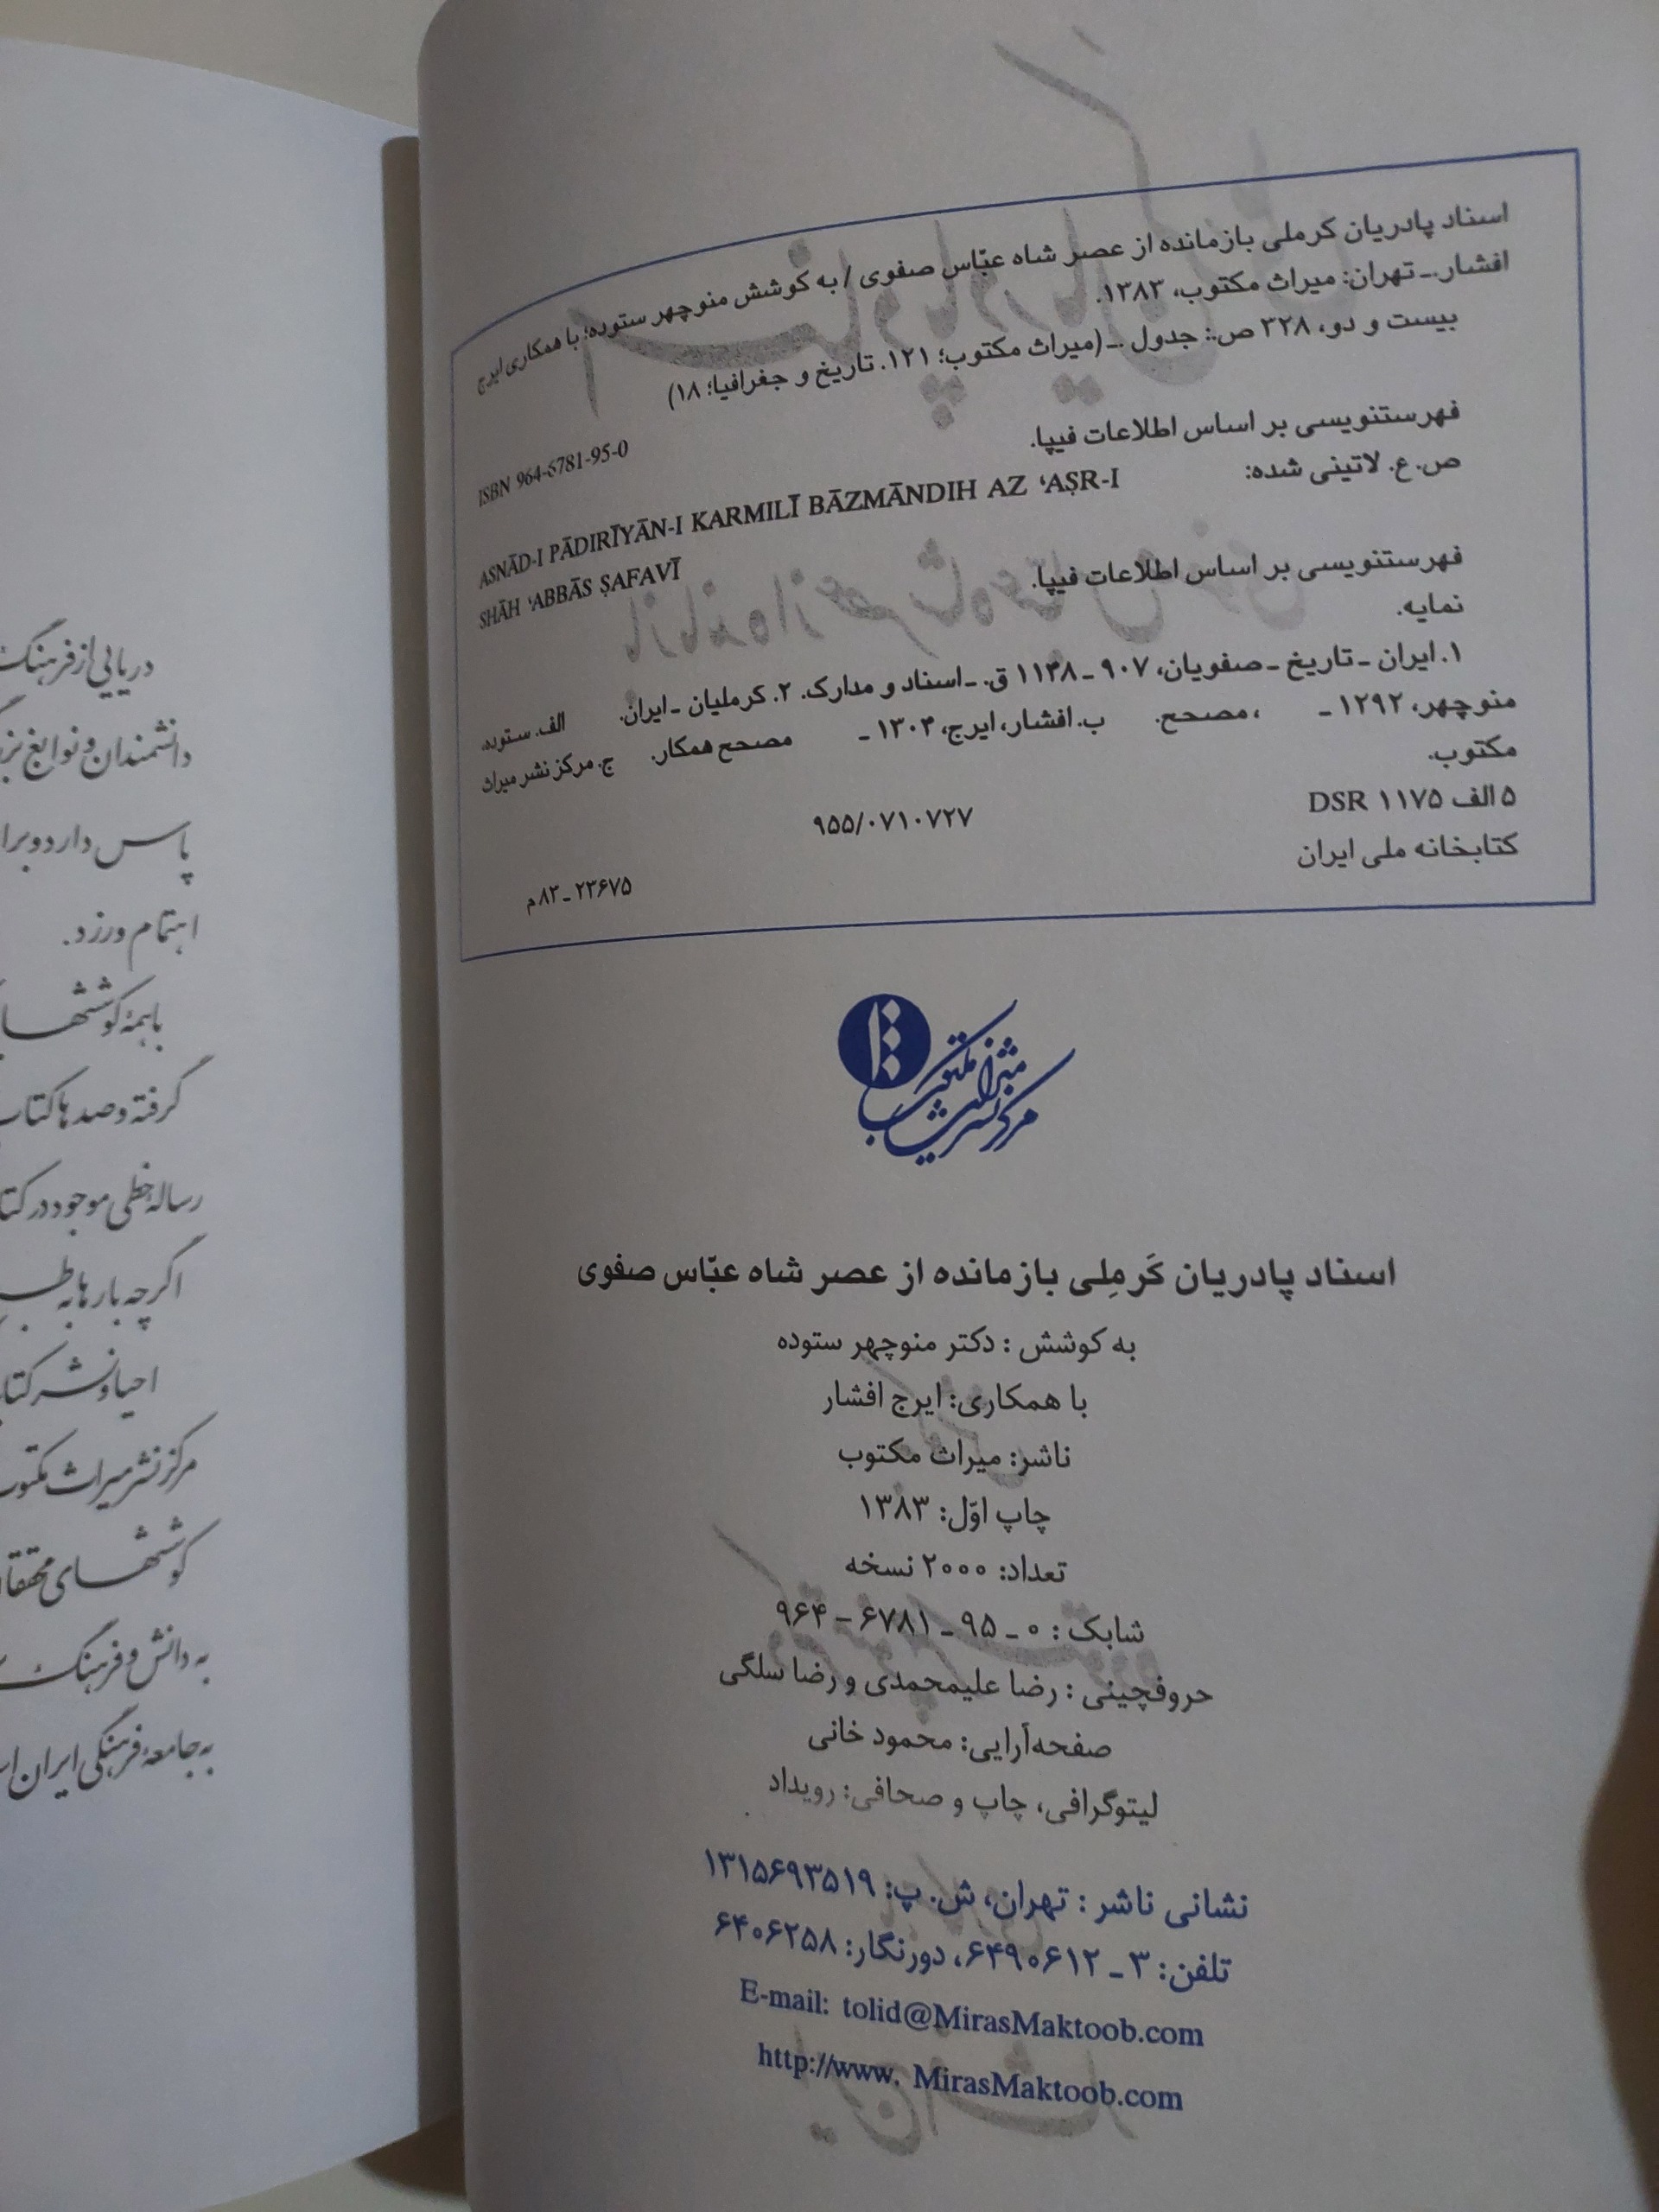 اسناد پادریان کرملی بازمانده از عصر شاه عبّاس صفوی / به کوشش منوچهر ستوده؛ با همکاری ایرج
افشار. ـ تهران: میراث مکتوب، ۱۳۸۳.
بیست و دو، ۳۲۸ ص.: جدول .ـ (میراث مکتوب؛ ۱۲۱. تاریخ و جغرافیا؛ ۱۸)
ISBN 964-6781-95-0
فهرستنویسی بر اساس اطلاعات فیپا.
ص. ع. لاتینی شده:
ASNĀD-I PĀDIRĪYĀN-I KARMILĪ BĀZMĀNDIH AZ ‘AṢR-I
SHĀH ‘ABBĀS ṢAFAVĪ
فهرستنویسی بر اساس اطلاعات فیپا.
نمایه.
۱. ایران ـ تاریخ ـ صفویان، ۹۰۷ ـ ۱۱۳۸ ق. ـ اسناد و مدارک. ۲. کرملیان ـ ایران. الف. ستوده،
منوچهر، ۱۲۹۲ ـ ، مصحح. ب. افشار، ایرج، ۱۳۰۴ ـ مصحح همکار. ج. مرکز نشر میراث
مکتوب.
۵ الف ۱۱۷۵ DSR ۹۵۵/۰۷۱۰۷۲۷
کتابخانه ملی ایران ۲۳۶۷۵ ـ ۸۳م
مرکز نشر میراث مکتوب
اسناد پادریان کَرمِلی بازمانده از عصر شاه عبّاس صفوی
به کوشش : دکتر منوچهر ستوده
با همکاری: ایرج افشار
ناشر: میراث مکتوب
چاپ اوّل: ۱۳۸۳
تعداد: ۲۰۰۰ نسخه
شابک : ۰ ـ ۹۵ ـ ۶۷۸۱ – ۹۶۴
حروفچینی : رضا علیمحمدی و رضا سلگی
صفحه‌آرایی: محمود خانی
لیتوگرافی، چاپ و صحافی: رویداد
نشانی ناشر : تهران، ش. پ: ۱۳۱۵۶۹۳۵۱۹
تلفن: ۳ ـ ۶۴۹۰۶۱۲، دورنگار: ۶۴۰۶۲۵۸
E-mail: tolid@MirasMaktoob.com
http://www. MirasMaktoob.com
دریایی از فرهنگ
دانشمندان و نوابغ
پاس دارد و برا
اهتمام ورزد.
با همهٔ کوششها
گرفته و صدها کتاب
رساله خطی موجود در
اگرچه بارها به
احیا و نشر
مرکز نشر میراث مکتوب
کوششهای
به دانش و فرهنگ
به جامعهٔ فرهنگی ایران